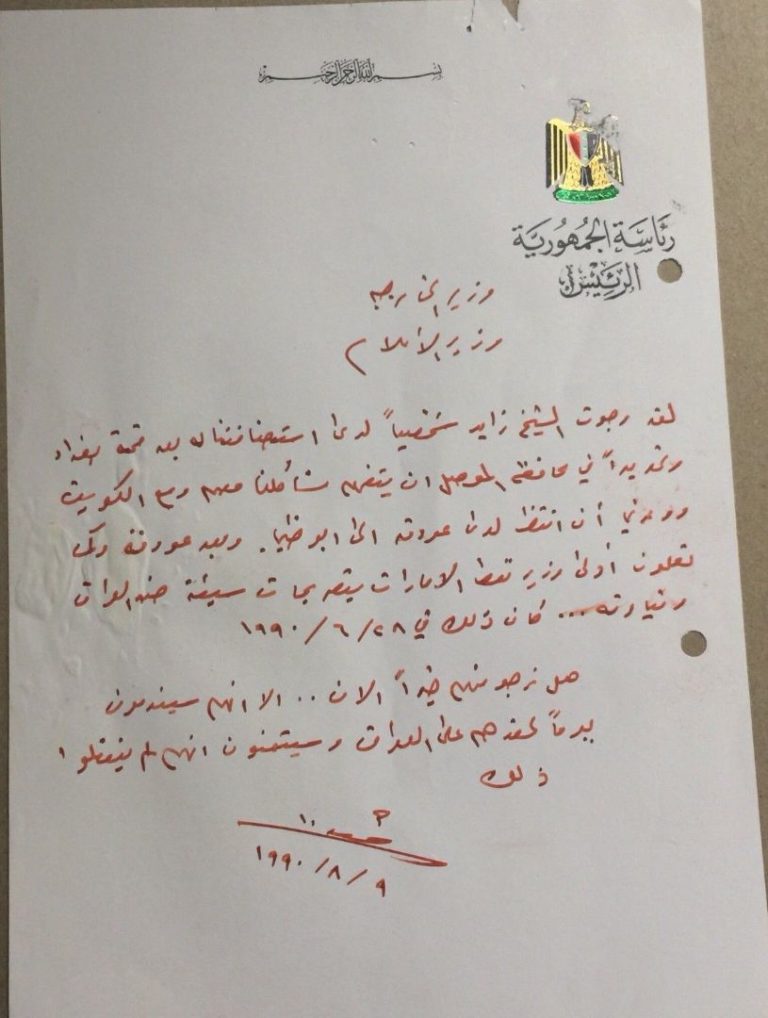 بسم الله الرحمن الرحيم
رئاسة الجمهورية
الرئيس
وزير الخارجية
وزير الأعلام
لقد رجوت الشيخ زايد شخصياً لدى استضافتنا له بعد قمة بغداد
وتحديداً في محافظة الموصل ان يتفهم مشاكلنا معهم ومع الكويت
ووعدني أن انتظر لدى عودته الى ابو ظبي. وبعد عودته وكما
تعلمون أدلى وزير نفط الامارات بتصريحات سيئة ضد العراق
وقيادته... كان ذلك في ٢٨/٦/١٩٩٠
هل نرجو منهم خيراً الان .. الا انهم سيندمون
يوماً لحقدهم على العراق وسيتمنون انهم لم يفعلوا
ذلك
١٩٩٠/٨/٩